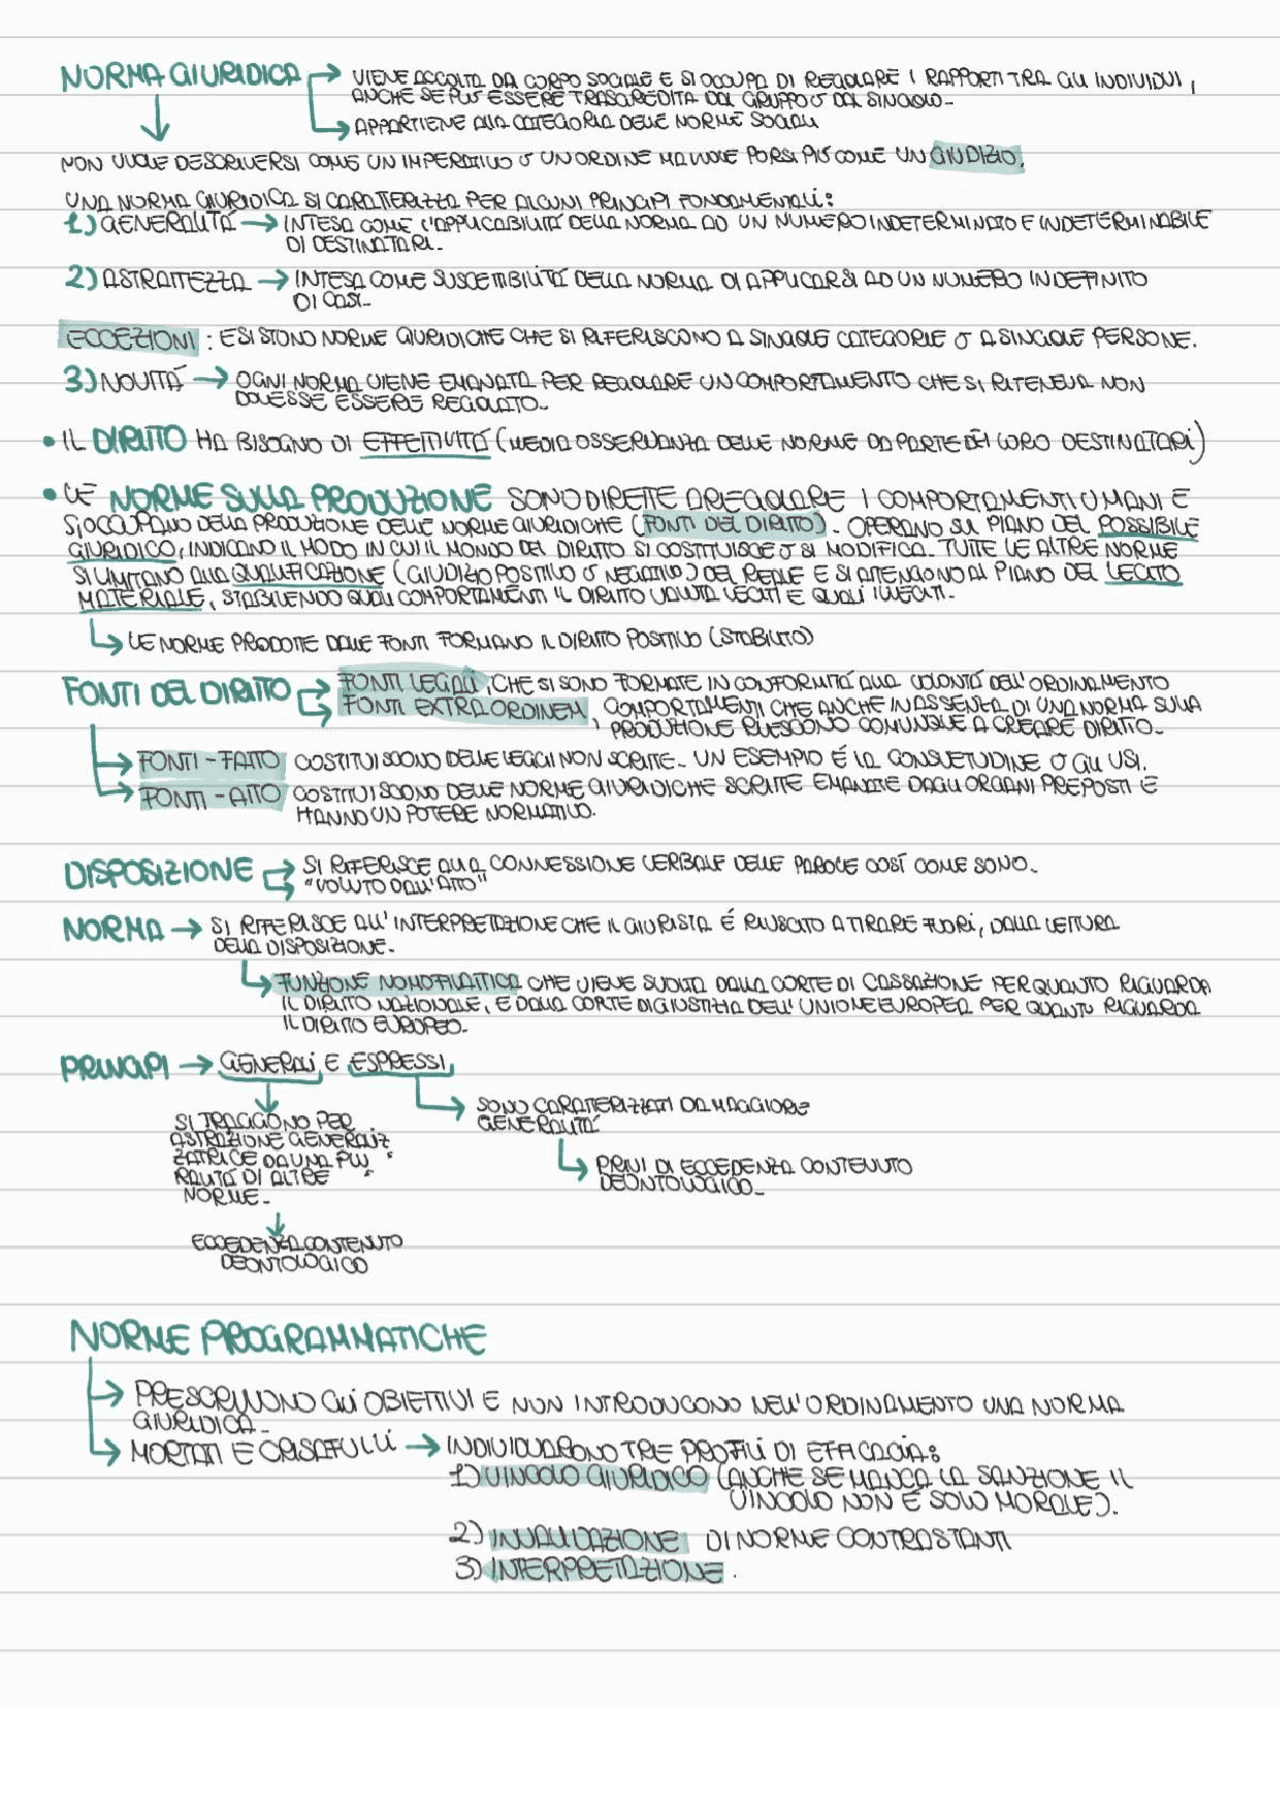 NORMA GIURIDICA → VIENE ACCOLTA DA CORPO SOCIALE E SI OCCUPA DI REGOLARE I RAPPORTI TRA GLI INDIVIDUI,
ANCHE SE PUÓ ESSERE TRASGREDITA DAL GRUPPO O DAL SINGOLO.
→ APPARTIENE ALLA CATEGORIA DELLE NORME SOCIALI
NON VUOLE DESCRIVERSI COME UN IMPERATIVO O UN ORDINE MA VUOLE PORSI PIÚ COME UN GIUDIZIO.
UNA NORMA GIURIDICA SI CARATTERIZZA PER ALCUNI PRINCIPI FONDAMENTALI:
1) GENERALITÁ → INTESA COME L'APPLICABILITÁ DELLA NORMA AD UN NUMERO INDETERMINATO E INDETERMINABILE
DI DESTINATARI.
2) ASTRATTEZZA → INTESA COME SUSCETTIBILITÁ DELLA NORMA DI APPLICARSI AD UN NUMERO INDEFINITO
DI CASI.
ECCEZIONI: ESISTONO NORME GIURIDICHE CHE SI RIFERISCONO A SINGOLE CATEGORIE O A SINGOLE PERSONE.
3) NOVITÁ → OGNI NORMA VIENE EMANATA PER REGOLARE UN COMPORTAMENTO CHE SI RITENEVA NON
DOVESSE ESSERE REGOLATO.
• IL DIRITTO HA BISOGNO DI EFFETTIVITÁ (MEDIA OSSERVANZA DELLE NORME DA PARTE DEI LORO DESTINATARI)
• LE NORME SULLA PRODUZIONE SONO DIRETTE A REGOLARE I COMPORTAMENTI UMANI E
SI OCCUPANO DELLA PRODUZIONE DELLE NORME GIURIDICHE (FONTI DEL DIRITTO). OPERANO SUL PIANO DEL POSSIBILE
GIURIDICO, INDICANO IL MODO IN CUI IL MONDO DEL DIRITTO SI COSTITUISCE O SI MODIFICA. TUTTE LE ALTRE NORME
SI LIMITANO ALLA QUALIFICAZIONE (GIUDIZIO POSITIVO O NEGATIVO) DEL REALE E SI ATTENGONO AL PIANO DEL LECITO
MATERIALE, STABILENDO QUALI COMPORTAMENTI IL DIRITTO VALUTA LECITI E QUALI ILLECITI.
→ LE NORME PRODOTTE DALLE FONTI FORMANO IL DIRITTO POSITIVO (STABILITO)
FONTI DEL DIRITTO → FONTI LEGALI, CHE SI SONO FORMATE IN CONFORMITÁ ALLA VOLONTÁ DELL'ORDINAMENTO
→ FONTI EXTRA ORDINEM, COMPORTAMENTI CHE ANCHE IN ASSENZA DI UNA NORMA SULLA
PRODUZIONE RIESCONO COMUNQUE A CREARE DIRITTO.
→ FONTI-FATTO COSTITUISCONO DELLE LEGGI NON SCRITTE. UN ESEMPIO É LA CONSUETUDINE O GLI USI.
→ FONTI-ATTO COSTITUISCONO DELLE NORME GIURIDICHE SCRITTE EMANATE DAGLI ORGANI PREPOSTI E
HANNO UN POTERE NORMATIVO.
DISPOSIZIONE → SI RIFERISCE ALLA CONNESSIONE VERBALE DELLE PAROLE COSÍ COME SONO.
→ "VOLUTO DALL'ATTO"
NORMA → SI RIFERISCE ALL'INTERPRETAZIONE CHE IL GIURISTA É RIUSCITO A TIRARE FUORI, DALLA LETTURA
DELLA DISPOSIZIONE.
→ FUNZIONE NOMOFILATTICA CHE VIENE SVOLTA DALLA CORTE DI CASSAZIONE PER QUANTO RIGUARDA
IL DIRITTO NAZIONALE, E DALLA CORTE DI GIUSTIZIA DELL'UNIONE EUROPEA PER QUANTO RIGUARDA
IL DIRITTO EUROPEO.
PRINCIPI → GENERALI E ESPRESSI
→ SONO CARATTERIZZATI DA MAGGIORE
GENERALITÁ
→ PRIVI DI ECCEDENZA CONTENUTO
DEONTOLOGICO.
SI TRAGGONO PER
ASTRAZIONE GENERALIZ
ZATRICE DA UNA PLU
RALITÁ DI ALTRE
NORME.
ECCEDENZA CONTENUTO
DEONTOLOGICO
NORME PROGRAMMATICHE
→ PRESCRIVONO GLI OBIETTIVI E NON INTRODUCONO NELL'ORDINAMENTO UNA NORMA
GIURIDICA.
→ MORTATI E CRISAFULLI → INDIVIDUARONO TRE PROFILI DI EFFICACIA:
1) VINCOLO GIURIDICO (ANCHE SE MANCA LA SANZIONE IL
VINCOLO NON É SOLO MORALE).
2) INVALIDAZIONE DI NORME CONTRASTANTI
3) INTERPRETAZIONE.